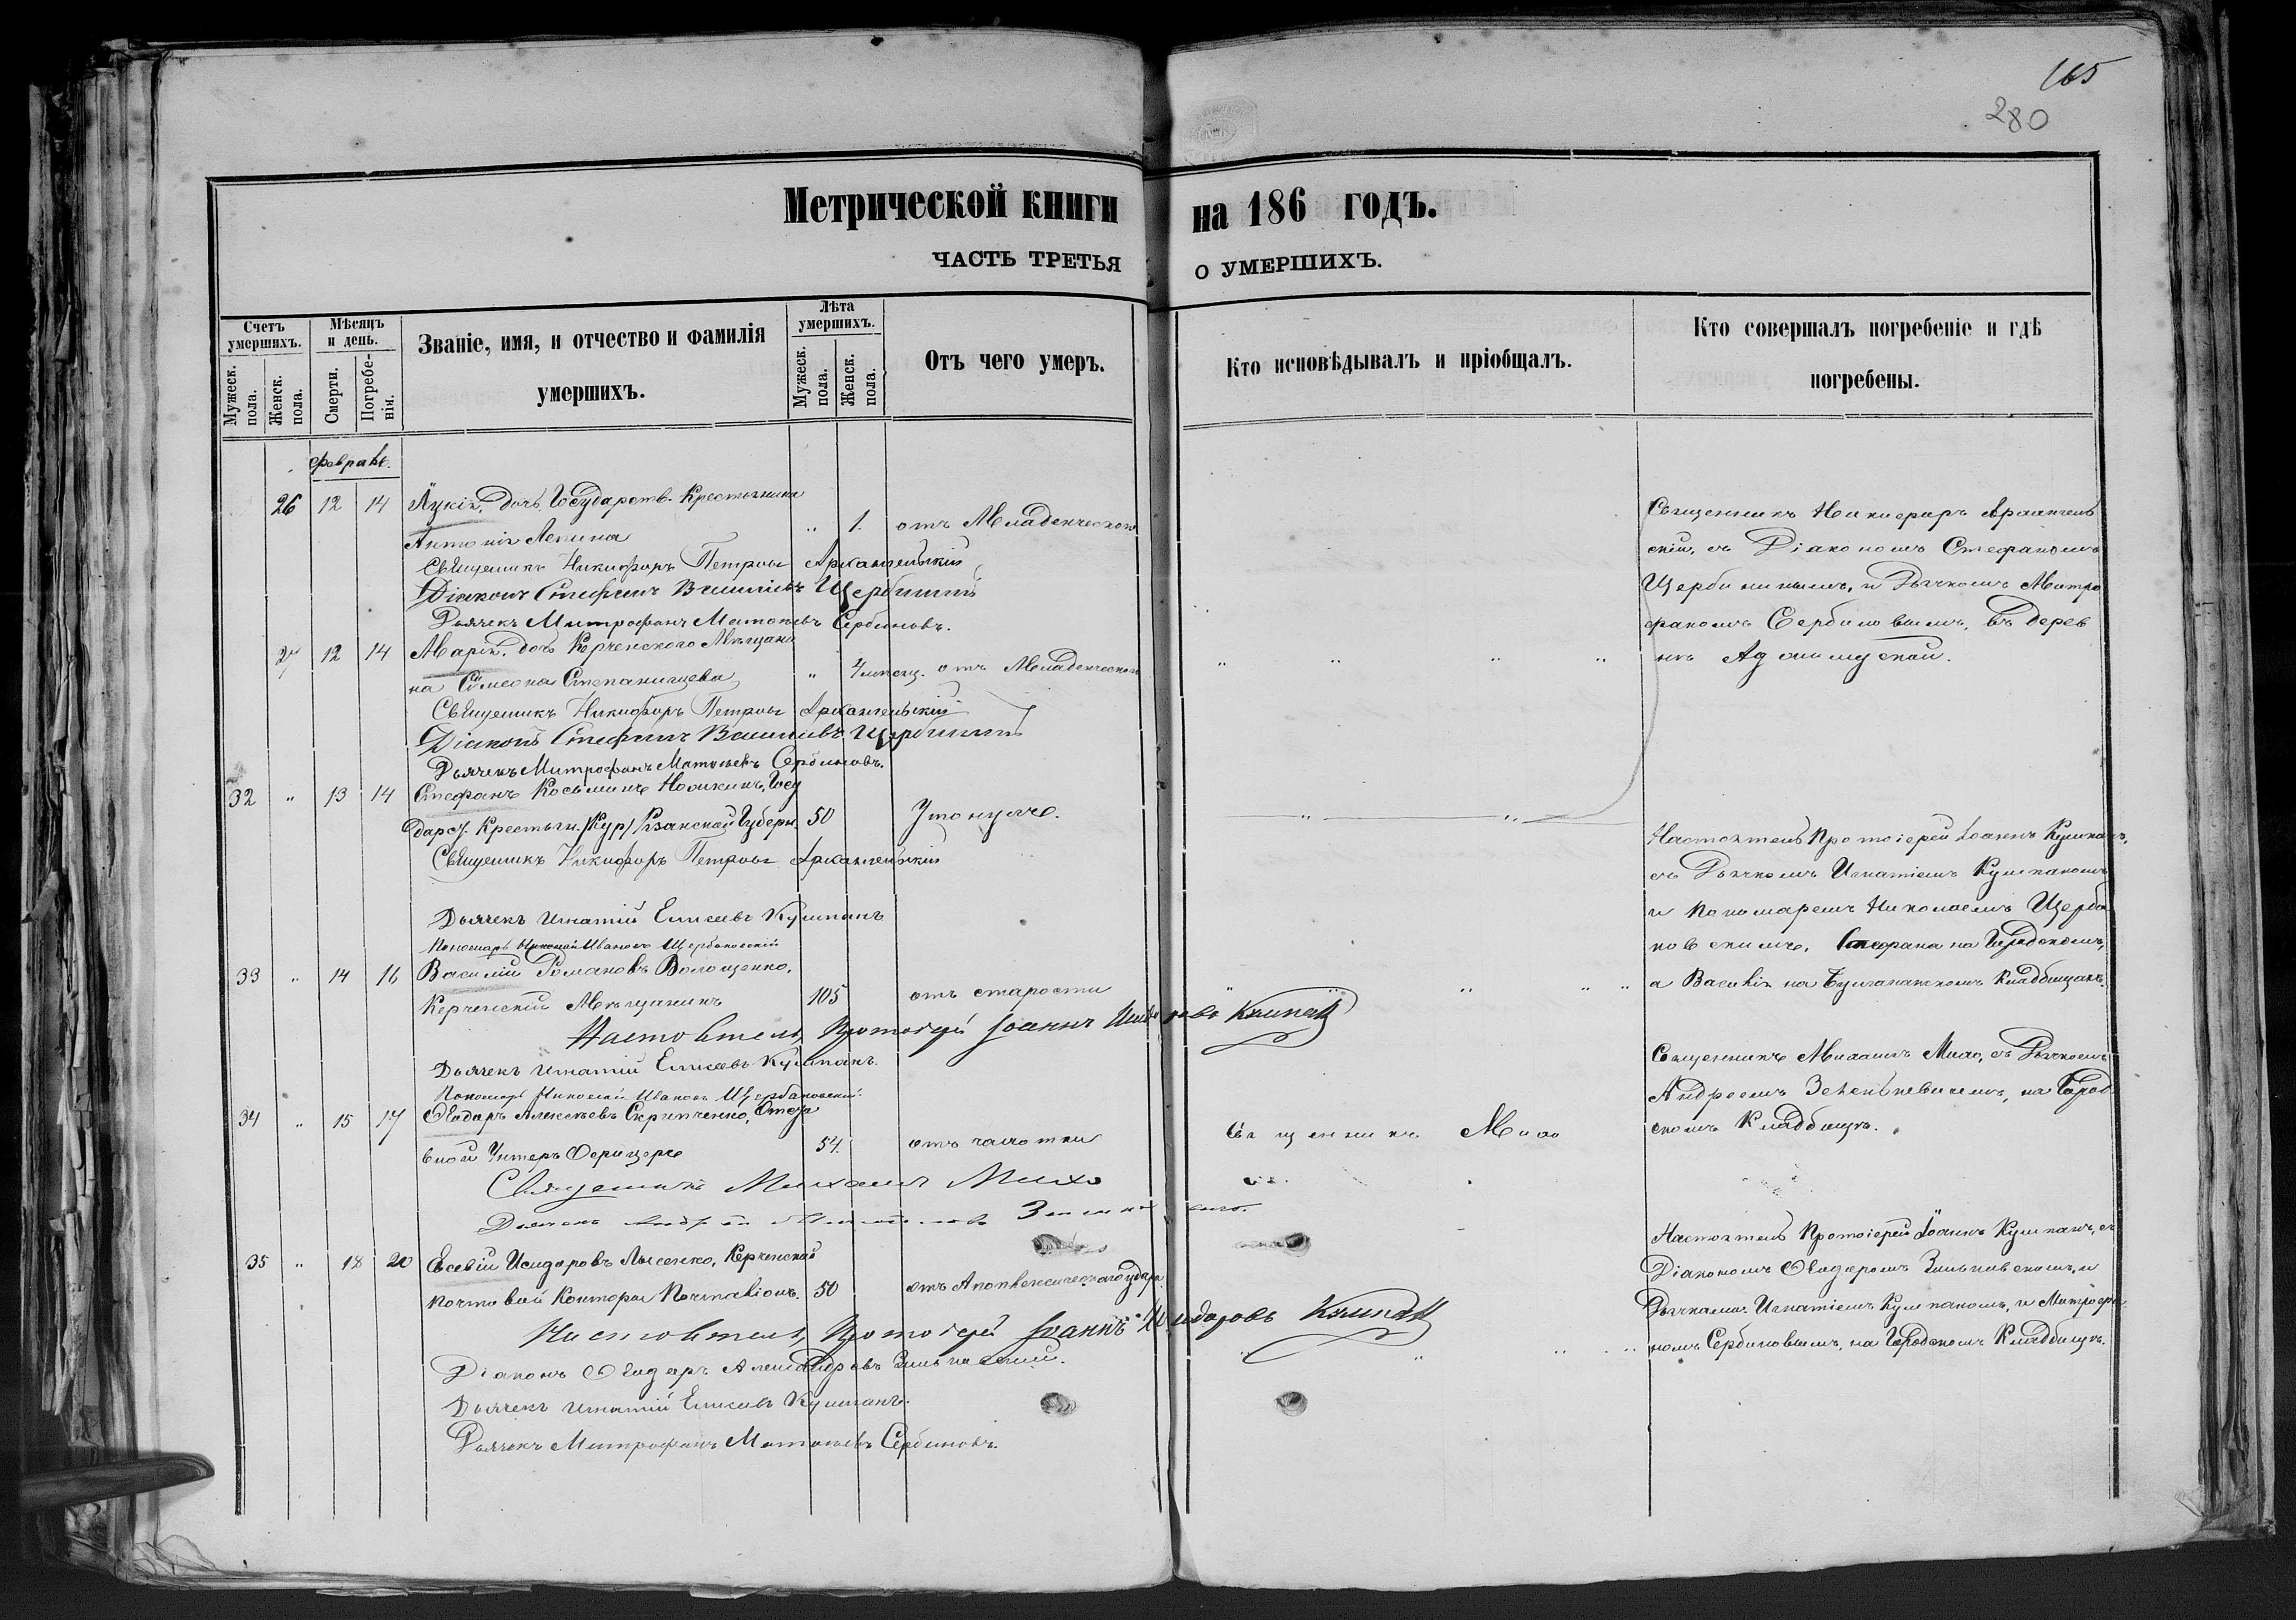 165
280
Метрической книги на 186 годъ.
ЧАСТЬ ТРЕТЬЯ О УМЕРШИХЪ.
Счетъ умершихъ.
Мужеск. пола.
Женск. пола.
Мѣсяцъ и день.
Смерти.
Погребе-нія.
Званіе, имя, и отчество и фамилія
умершихъ.
Лѣта умершихъ.
Мужеск. пола.
Женск. пола.
Отъ чего умеръ.
Кто исповѣдывалъ и пріобщалъ.
Кто совершалъ погребеніе и гдѣ
погребены.
Февраль.
26 12 14 Лукія, дочь Государств. Крестьянина
Антонія Лепина " 1. отъ Младенческой
Священникъ Никифоръ Петровъ Архангельскій
Діаконъ Стефанъ Васильевъ Щербининъ
Дьячекъ Митрофанъ Матвѣевъ Сербиновъ.
Священникъ Никифоръ Архангель
скій, съ Діакономъ Стефаномъ
Щербининымъ, и Дьячкомъ Митро
фаномъ Сербиновымъ, въ дерев
нѣ Аджимушкай.
27 12 14 Марія, дочь Керченского Мѣщани
на Симеона Степанищева " 4 мѣсяц. отъ Младенческой " " " "
Священникъ Никифоръ Петровъ Архангельскій
Діаконъ Стефанъ Васильевъ Щербининъ
Дьячекъ Митрофанъ Матвѣевъ Сербиновъ.
32 " 13 14 Стефанъ Косьминъ Носикинъ, Госу
дарст. Крестьян. (Кур) Рязанской Губерн. 50 Утонулъ. " "
Священникъ Никифоръ Петровъ Архангельскій
Дьячекъ Игнатій Елисеевъ Кушпанъ
Пономарь Николай Ивановъ Щербаковскій
Настоятель Протоіерей Іоаннъ Кумпанъ,
съ Дьячкомъ Игнатіемъ Кумпаномъ
и Пономаремъ Николаемъ Щерба
ковскимъ, Стефана на Городскомъ,
а Василія на Булганакскомъ Кладбищахъ.
33 " 14 16 Василій Романовъ Волощенко,
Керченскій Мѣщанинъ 105 отъ старости " " " "
Настоятель, Протоіерей Іоаннъ Исидоровъ Кумпанъ
Дьячекъ Игнатій Елисеевъ Кумпанъ.
Пономарь Николай Ивановъ Щербаковскій.
34 " 15 17 Ѳеодоръ Алексѣевъ Скрипченко, Отста
вной Унтеръ Офицеръ 54. отъ чахотки Священникъ Михо
Священникъ Михаилъ Михо
Священникъ Михаилъ Михо, съ Дьячкомъ
Андреемъ Зеленкевичемъ, на Город
скомъ Кладбищѣ.
35 " 18 20 Евсевій Исидоровъ Лысенко, Керченской
почтовой Конторы Почталіонъ. 50 отъ Апоплексическаго удара
Настоятель, Протоіерей Іоаннъ Исидоровъ Кумпанъ
Діаконъ Ѳеодоръ Александровъ
Дьячекъ Игнатій Елисеевъ Кумпанъ.
Дьячекъ Митрофанъ Матвѣевъ Сербиновъ.
Настоятель Протоіерей Іоаннъ Кумпанъ, съ
Діакономъ Ѳеодоромъ и
Дьячками: Игнатіемъ Кумпаномъ, и Митрофа
номъ Сербиновымъ, на Городскомъ Кладбищѣ.